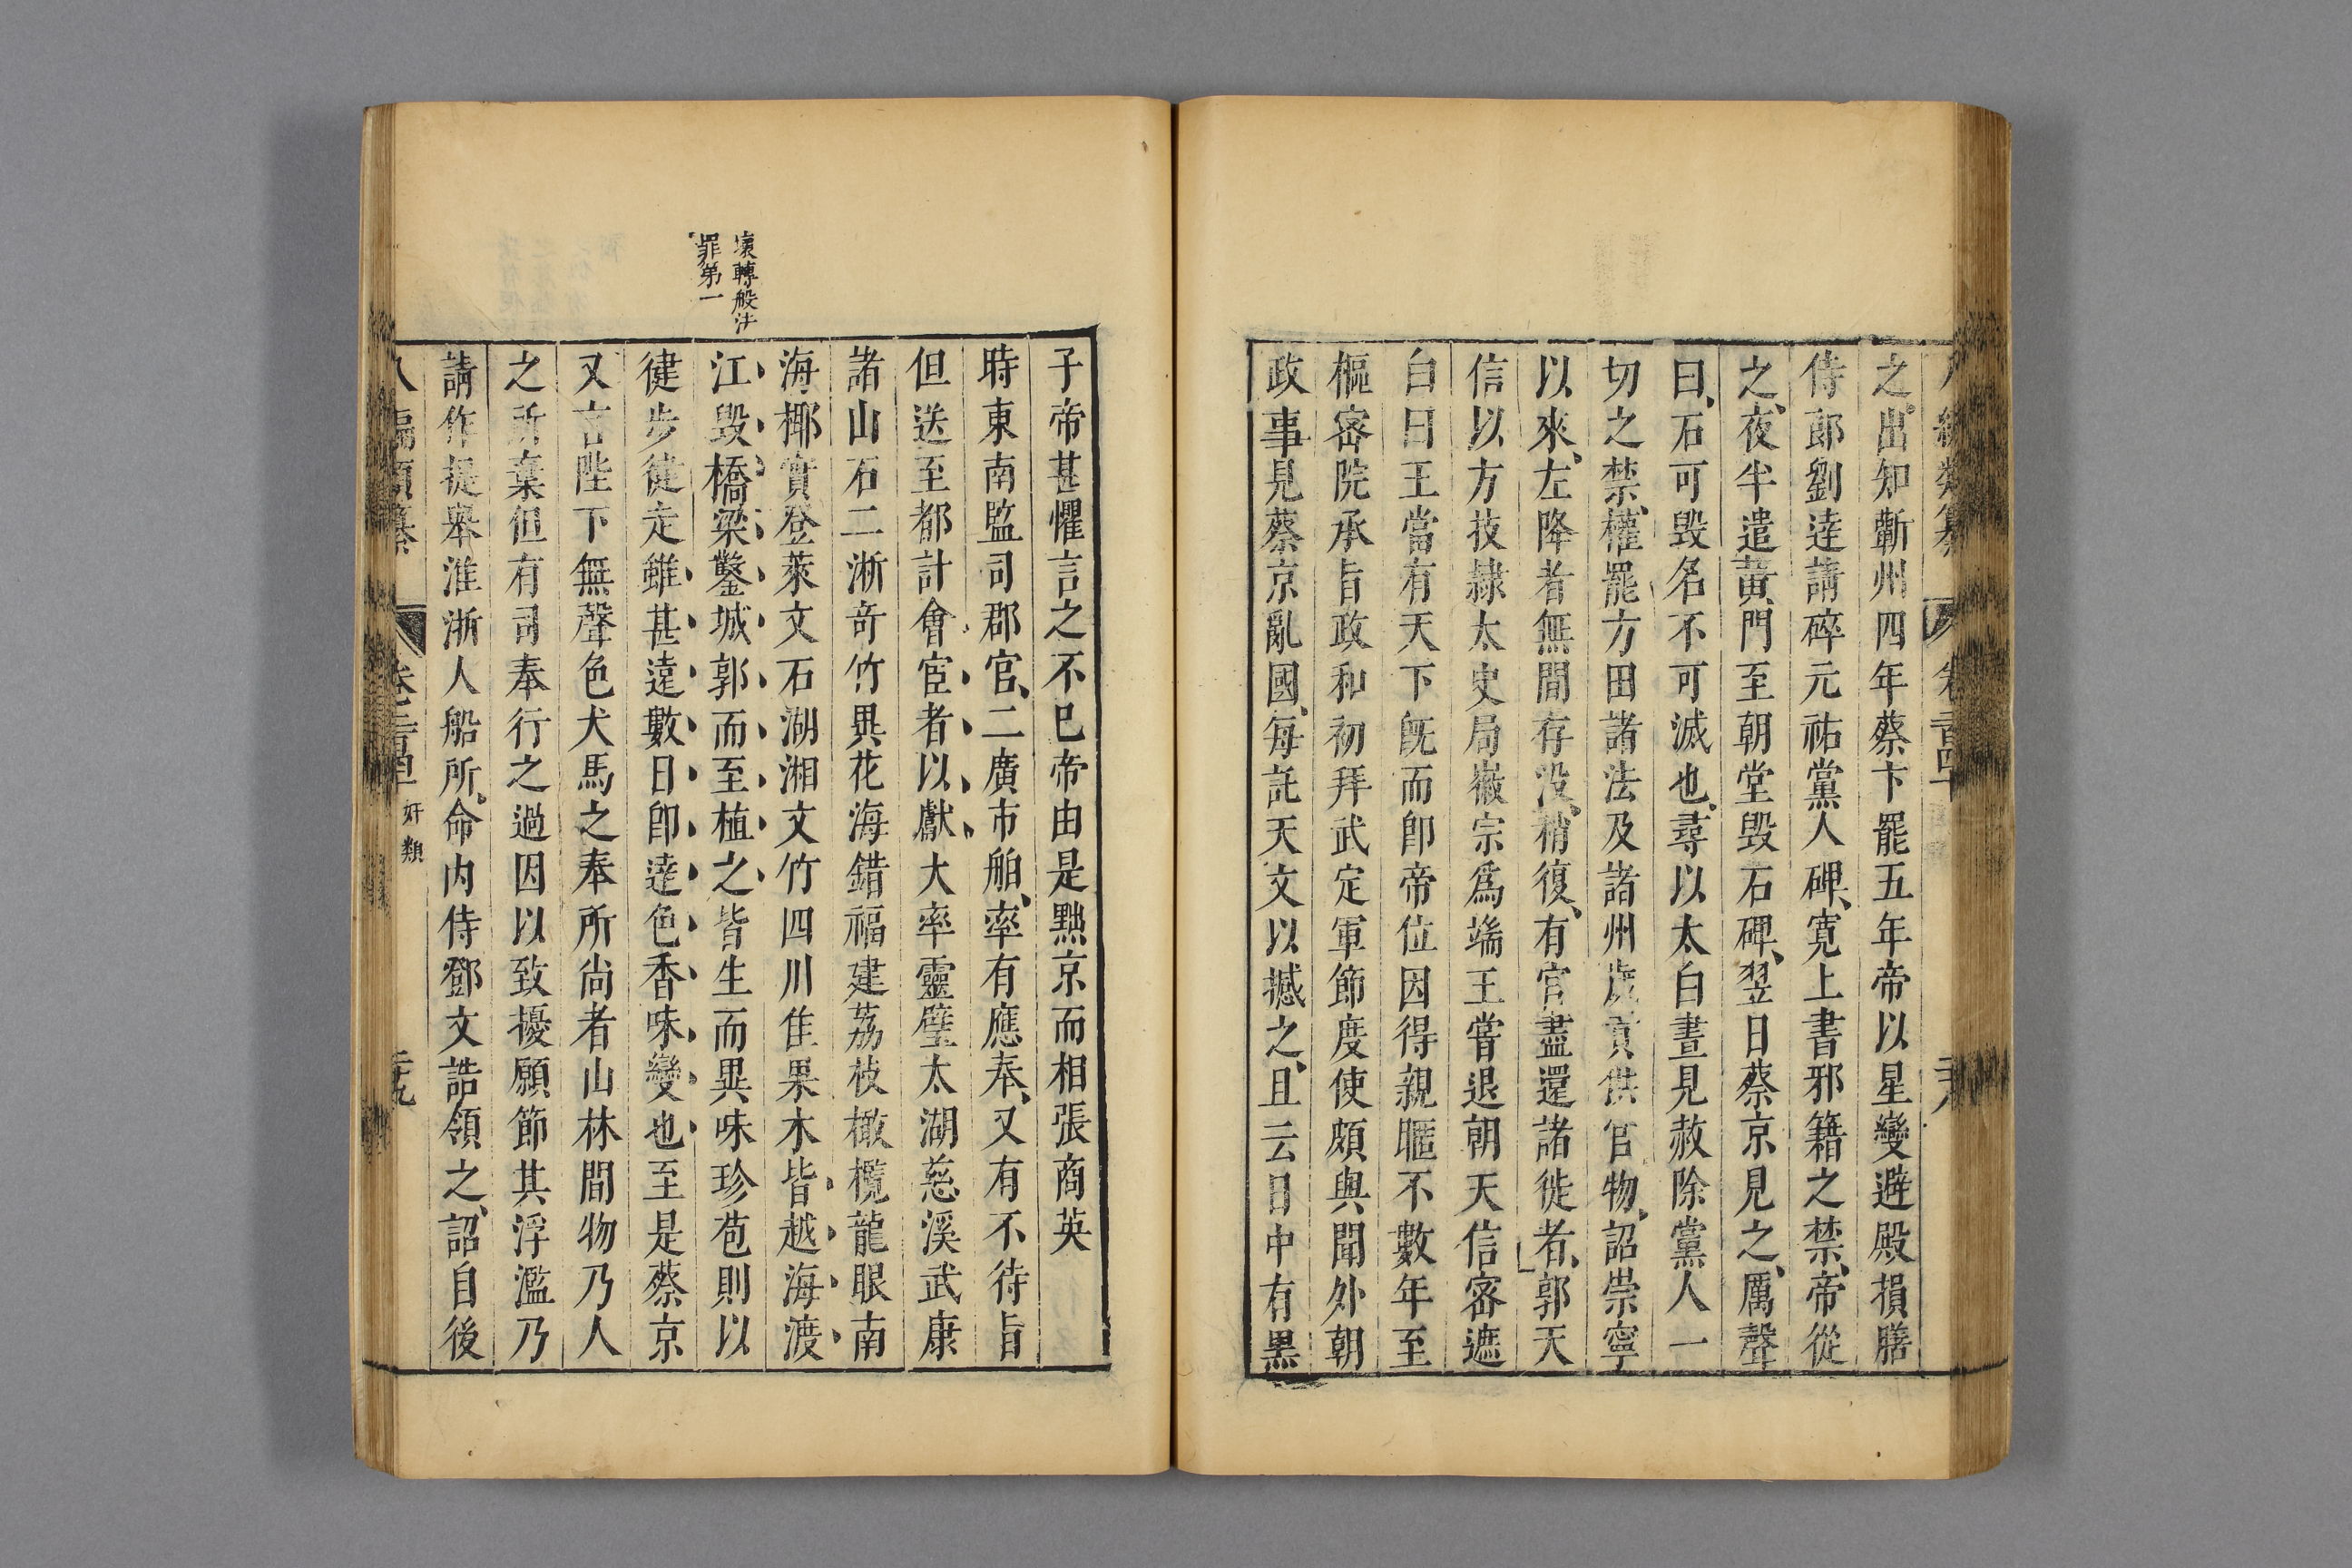 之出知蘄州四年蔡卞罷五年帝以星變避殿損膳
侍郎劉逵請碎元祐黨人碑寬上書邪籍之禁帝從
之夜半遣黃門至朝堂毀石碑翌日蔡京見之厲聲
曰石可毀名不可滅也尋以太白晝見赦除黨人一
切之禁權罷方田諸法及諸州歲貢供官物詔崇寧
以來左降者無間存没稍復有官盡還諸徙者郭天
信以方技隷太史局徽宗爲端王嘗退朝天信密遮
白曰王當有天下旣而卽帝位因得親暱不數年至
樞密院承旨政和初拜武定軍節度使頗與聞外朝
政事見蔡京亂國每託天文以撼之且云日中有黑
子帝甚懼言之不已帝由是黜京而相張商英
時東南監司郡官二廣市舶率有應奉又有不待旨
但送至都計會宦者以獻大率靈壁太湖慈溪武康
諸山石二浙奇竹異花海錯福建荔枝橄欖龍眼南
海椰實登萊文石湖湘文竹四川佳果木皆越海渡
江毀橋梁鑿城郭而至植之皆生而異味珍苞則以
健步徒走雖甚遠數日卽達色香味變也至是蔡京
又言陛下無聲色犬馬之奉所尚者山林間物乃人
之所棄但有司奉行之過因以致擾願節其浮濫乃
請作提舉淮浙人船所命内侍鄧文誥領之詔自後
壞轉般法
罪第一
八編類纂 奸類 三十九